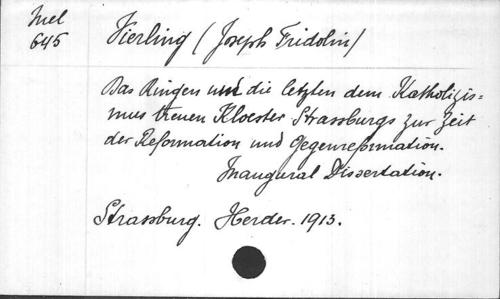 Mel 645
Vierling (Joseph Fridolin)
Das Ringen um die letzten dem Katholizis=
mus treuen Kloester Strassburgs zur Zeit
der Reformation und Gegenreformation.
Inaugural Dissertation.
Strassburg. Herder. 1913.